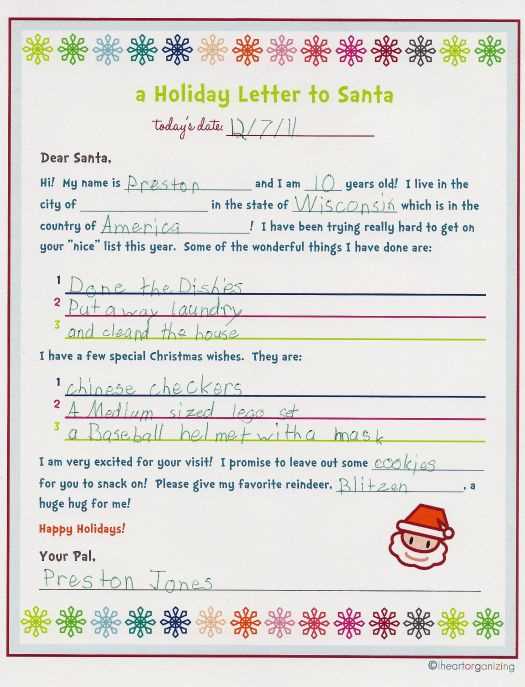 a Holiday Letter to Santa
today's date: 12/7/11
Dear Santa,
Hi! My name is Preston and I am 10 years old! I live in the
city of in the state of Wisconsin which is in the
country of America ! I have been trying really hard to get on
your "nice" list this year. Some of the wonderful things I have done are:
1 Done the Dishes
2 Put away laundry
3 and cleand the house
I have a few special Christmas wishes. They are:
1 chinese checkers
2 A Medium sized lego set
3 a Baseball helmet with a mask
I am very excited for your visit! I promise to leave out some cookies
for you to snack on! Please give my favorite reindeer, Blitzen , a
huge hug for me!
Happy Holidays!
Your Pal,
Preston Jones
©iheartorganizing